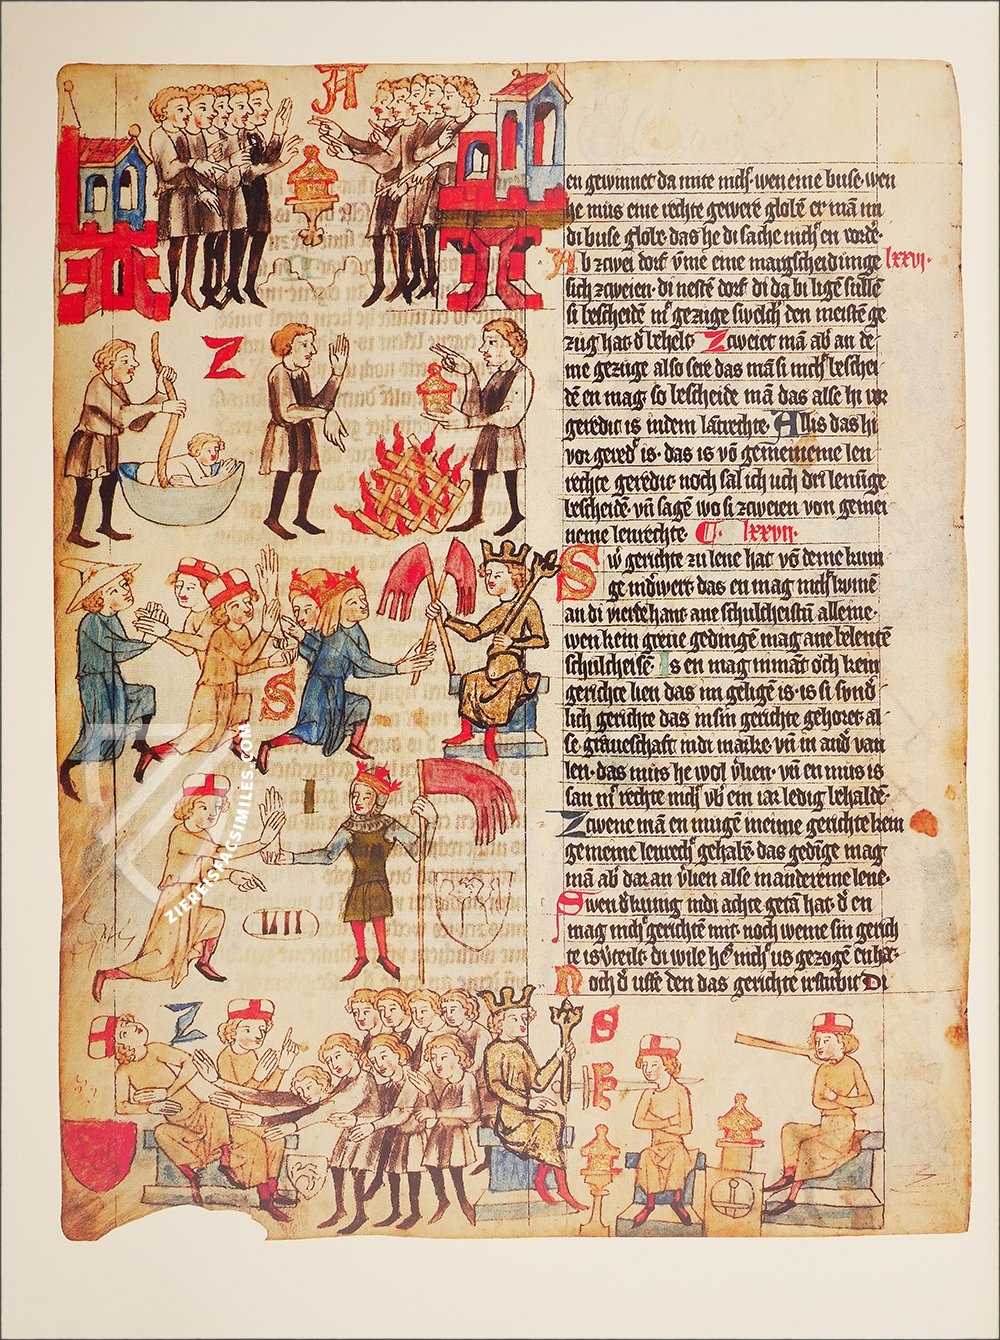 A
en gewinnet da mite nich. wen eine buse. wen
he mus eine rechte gewere globe er ma im
di buse globe das he di sache nich en vorde.
Ab zwei dorf vme eine margscheidunge lxxvi.
sich zweien. di neste dorf di da bi lige sulle
si bescheide mit gezuge swelch den meiste ge
zug hat d behelt. Zweiet ma ab an de
me gezuge also sere das ma si nich beschei
de en mag so bescheide ma das alse hi vor
geredit is indem latrechte. Allis das hi
vor gered is. das is vo gemeineme len
rechte geredit noch sal ich uch dri lenuge
bescheide vn sage wo si zweien von gemei
neme lenrechte. C. lxxvii.
Sw gerichte zu lene hat vo deme kuni
ge indwert das en mag nich kume
an di vierde hant ane schulcheistu alleine.
wen kein greue gedinge mag ane belente
schulcheise. Is en mag niman och kein
gerichte lien das im gelige is. is si sund
lich gerichte das in sin gerichte gehoret al
se graueschaft in di marke vn in and van
len. das mus he wol vlien. vn en mus is
san mit rechte nich vb ein iar ledig behalde.
Zwene ma en muge nieime gerichte kein
gemeine lenrech gehabe. das gedige mag
ma ab dar an vlien alse man dereme lene.
Swen d kunig in di achte geta hat d en
mag nich gerichte mit. noch weme sin gerich
te is vteilt. di wile he sich nich us gezoge en ha.
Noch d uffe den das gerichte irstirbit Di
Z
S
I
VII
Z
S
ZIEREISFACSIMILES.COM